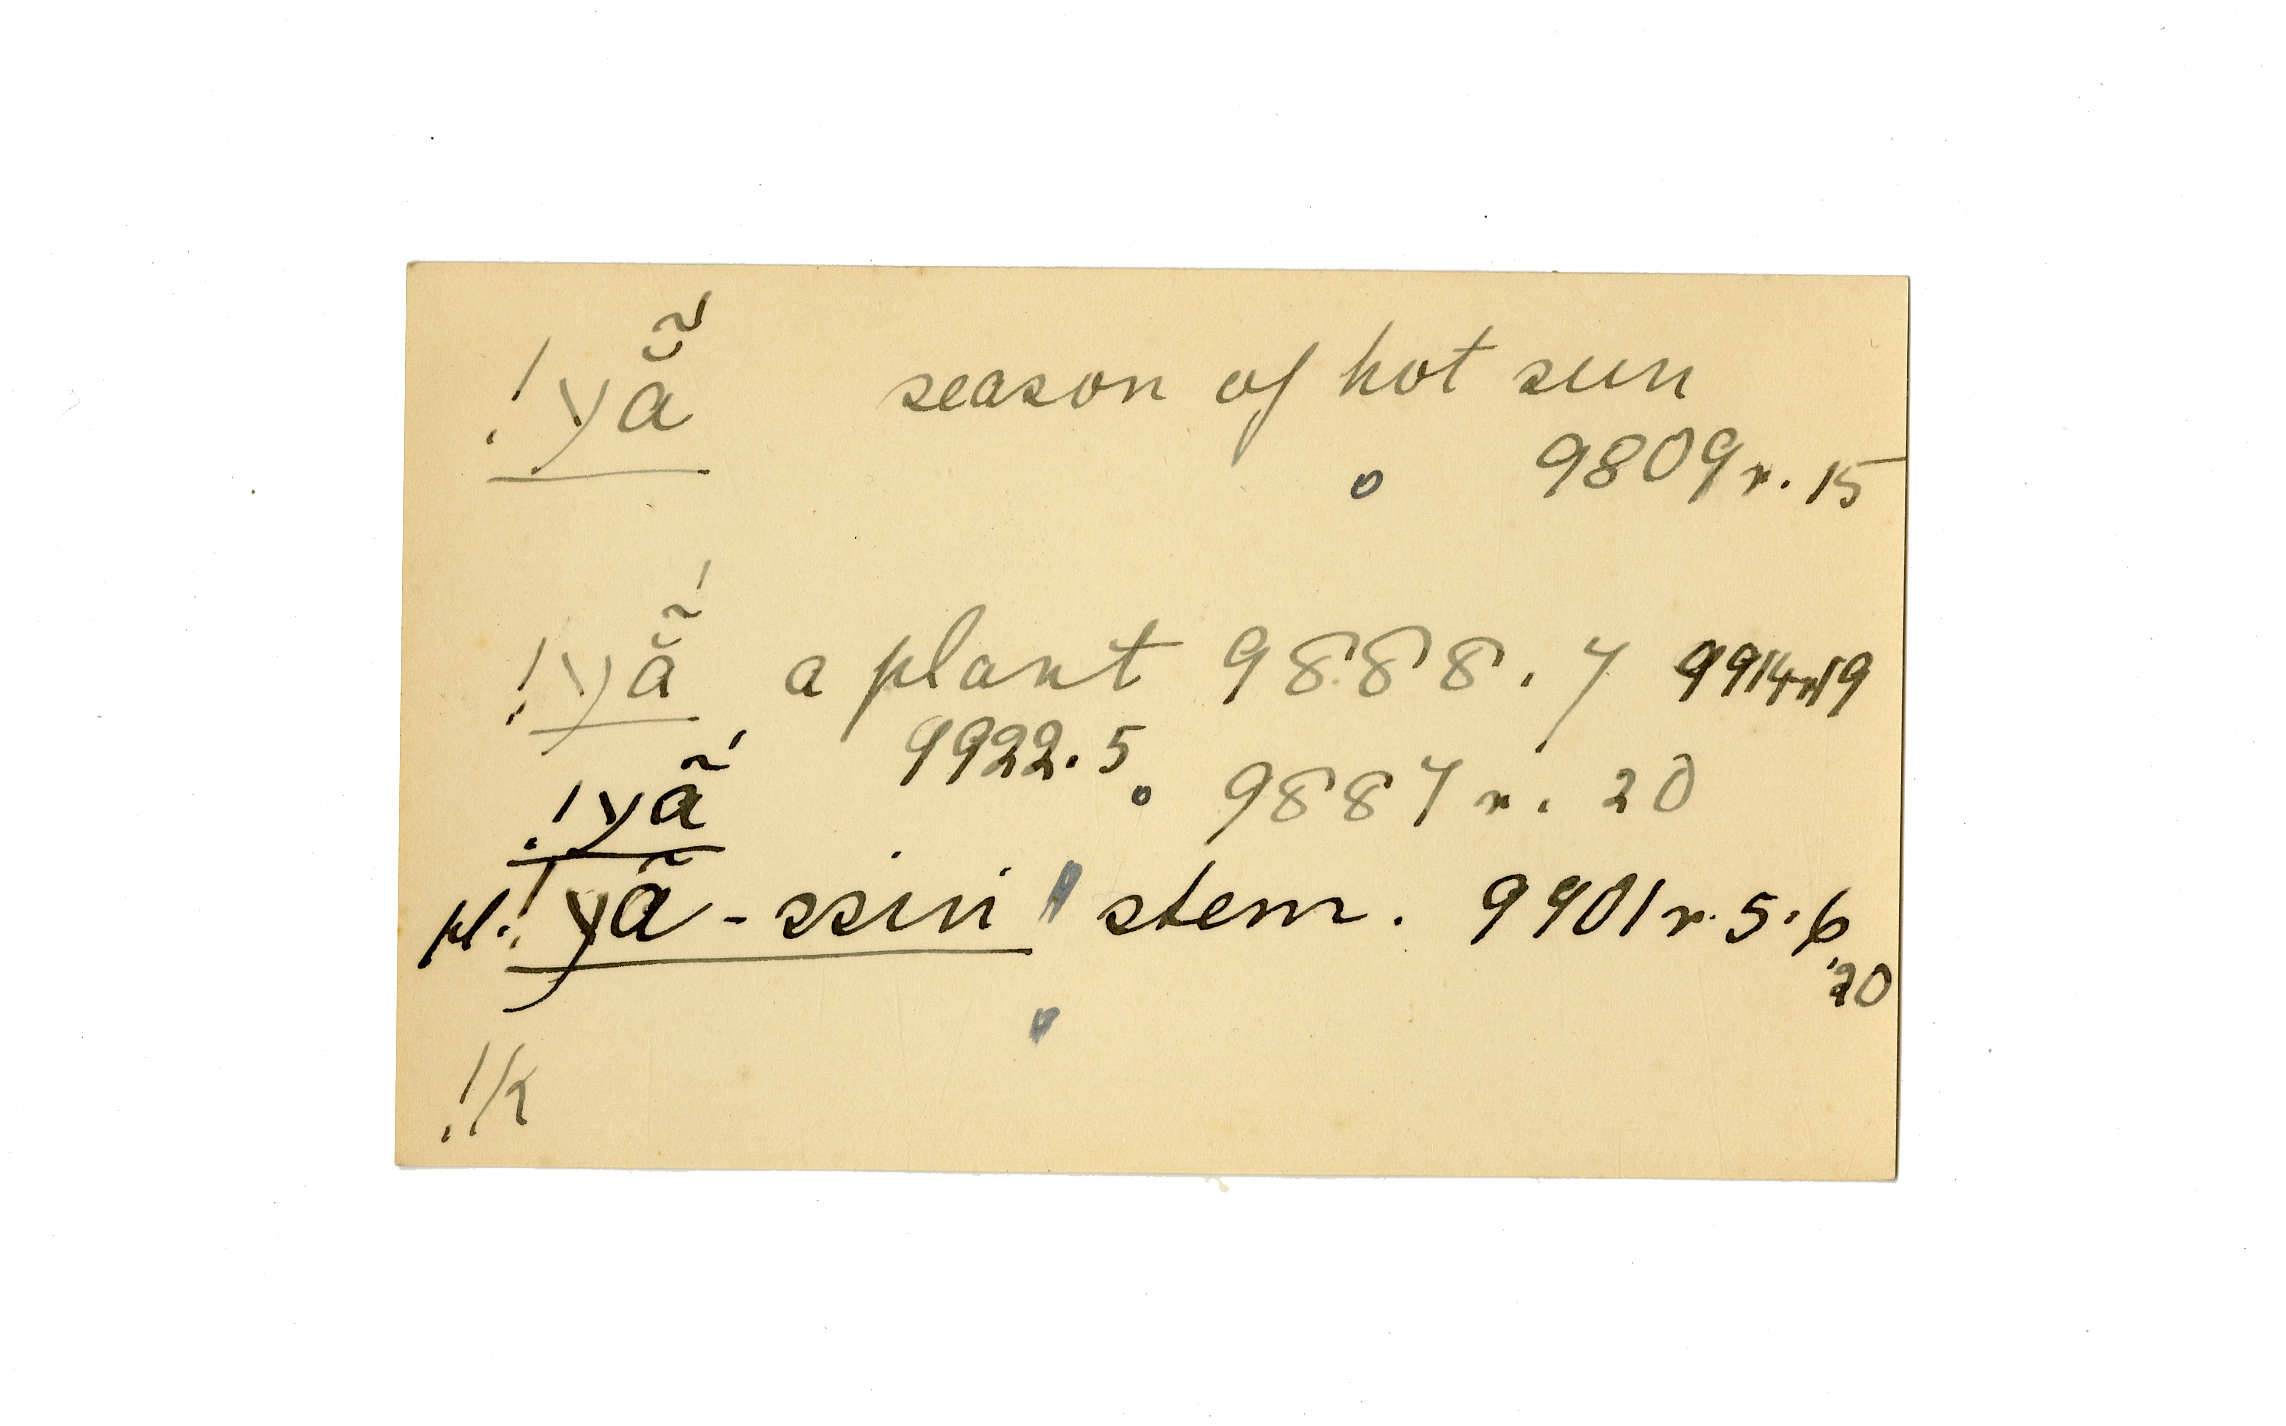 !yã̆́ season of hot sun
9809 r. 15
!yã̆́ a plant 9888.7 9914r19
9922.5
!yã́ 9887 r. 20
pl. !yã-ssin stem. 9901 r. 5.6
.20
!k